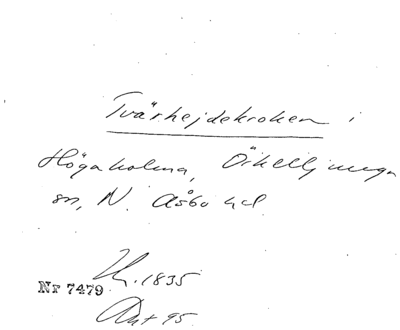 Tvärhejdekroken i
Högaholma, Örkelljunga
sn, N. Åsbo hd.
Nr 7479
1835
Ant 95